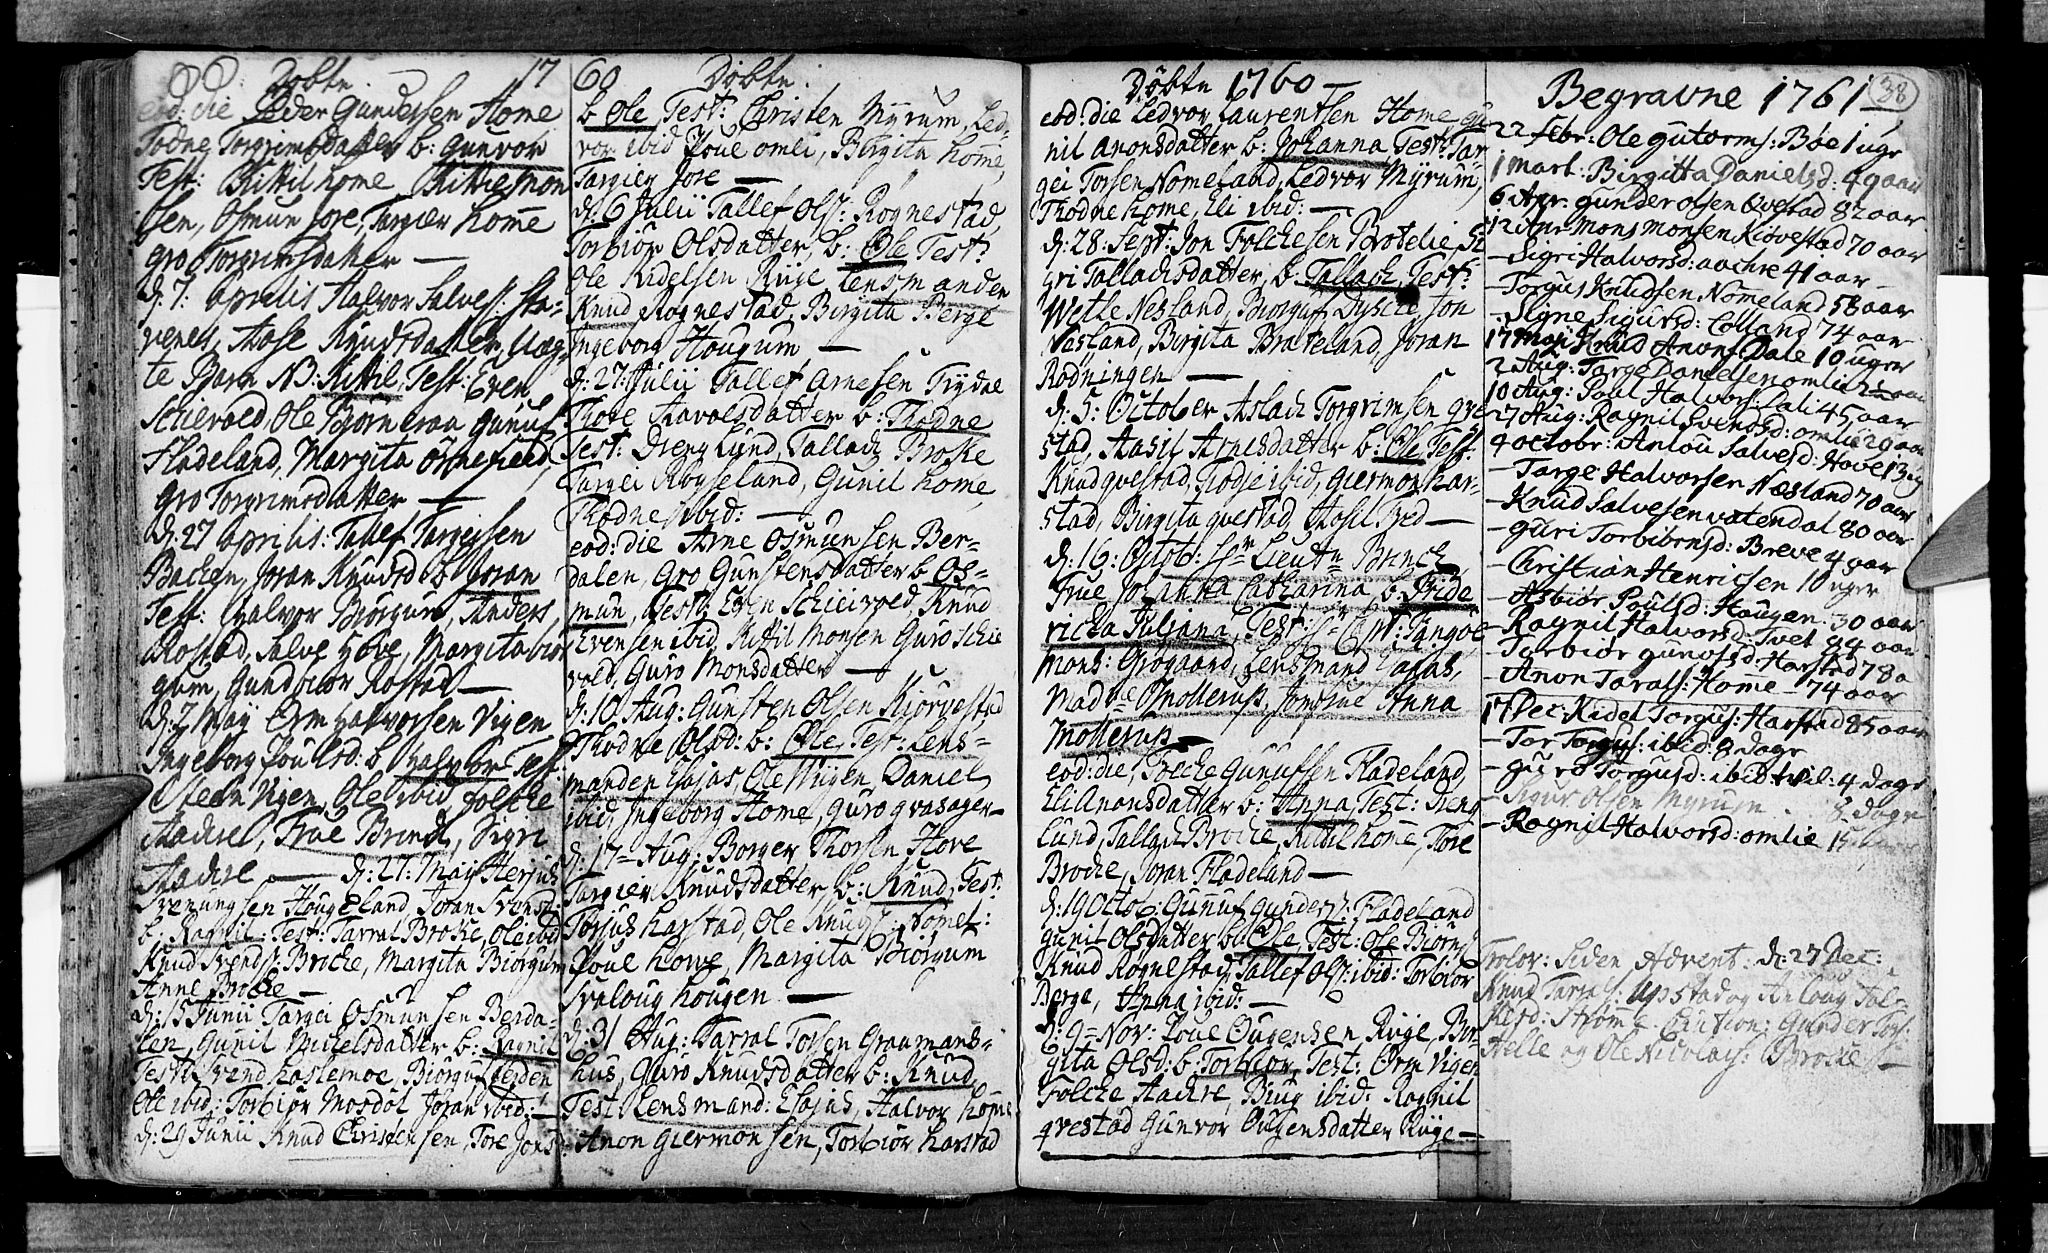 Døbte. 17
eod: die Peder Gundersen Home
Todne Torgrimsdatter b: Gunvor
Test: Kittil home Kittil Mon
sen, Osmun Jore, Targier home
gro Torgrimsdatter —
d: 7: Aprilis Halvor Salves: Sta-
venes, Aase Knudsdatter, Uæg-
te Barn NB. Kittil, Test: Even
Schievold, Ole Biorneraa Gunuf
Fladeland, Margita
gro Torgrimsdatter —
d: 27 Aprilis: Tallef Targiesen
Backen, Joran Knudsd b Joran
Test: Halvor Biørgum, Anders
Rostad, Salve Hove, Margita biør
gum, Gundvior Rostad —
d: 2 Maÿ Orm Halvorsen Vigen
Ingeborg Poulsd: b Halvor Test:
Steen Vigen, Ole ibid, Folche
Aachre, Frue Brinch, Sigri
Aachre — d: 27: Maÿ Herjus
Svenungsen Hougeland, Joran Svensd:
b: Ragnil: Test: Tarral Broke, Ole ibid
Knud Svends: Broche, Margita Biørgum
Anne Broke —
d: 15 Junii Targei Osmunsen Berda-
len, Gunil Nielsdatter b: Ragnil
Test: Svend haslemoe, Biorguf
Ole ibid: Torbior Mosdol Joran ibid: —
d: 29 Junii Knud Christensen, Tore Jons
60 Døbte.
b Ole Test: Christen Mÿrum, Led-
vor ibid Poue omli, Birgita home,
Targier Jore —
d: 6 Julii Tallef Ols: Rognestad,
Torbiør Olsdatter, b: Ole Test:
Ole Kidelsen Rüge, Lensmanden
Knud Rognestad, Birgita Berge
Ingeborg Hougum —
d: 27: Julii Tallef Arnesen Trydal
Thore Aavolsdatter b: Thodne
Test: Dreng Lund, Tallach Broke
Targei Røyseland, Gunil home,
Thodne ibid: —
eod: die Arne Osmunsen Ber-
dalen, Gro Gunstensdatter b Os-
mun, Test: Even Schieivold, Knud
Evensen ibid, Kittil Monsen Guro Schie
vold, Guro Monsdatter —
d: 10 Aug: Gunsten Olsen Kiørvestad
Thodne Olsd: b: Ole, Test: Lens-
manden Esajas, Ole Wiigen, Daniel
ibid, Ingeborg Home, Guro qvasager—
d: 17= Aug: Borger Thorsen Hove
Targier Knudsdatter, b: Knud, Test:
Torjus harstad, Ole Knuds: Nomel:
Poue howe, Margita Biørgum
Svaloug hougen —
d: 31 Aug: Tarral Torsen Graumans-
hus, Guro Knudsdatter b: Knud
Test Lensmand: Esajas, Halvor home
Anon Giermonsen, Torbiør harstad
Døbte 1760 —
eod: die Ledvor Laurentsen Home Gu
nil Anonsdatter b: Johanna Test: Tar
gei Torsen Nomeland, Ledvor Mÿrum,
Thodne home, Eli ibid: —
d: 28: Sept: Jon Folchesen Brotelie, Si
gri Talladisdatter, b: Tallach, Test:
Wetle Nesland, Biorguf Dysche, Jon
Nesland, Birgita Brateland, Joran
Rodningen —
d: 5: October Aslach Torgrimsen
stad, Aasil Arnesdatter b: Ole, Test:
Knud qvestad, Todje ibid, Giermon har-
stad, Birgita qvestad, Aasil —
d: 16: Octob: Hr Lieutn Brinch
Frue Johanna Catharina b: Fride
ricka Juliana, Test: Hr Cpt: Tangoe,
Mons: Grogaard, Lensmand Esajas,
Madme Smollerup, Jomfrue Anna
Mollerup —
eod: die, Folche Gunufsen Fladeland,
Eli Anonsdatter b: Anna Test: Dreng
Lund, Tallach Broche, Kittil home, Tore
Broche, Joran Fladeland —
d: 19 Octob: Gunuf Gunders: Fladeland
Gunil Olsdatter b: Ole, Test: Ole Biorns
Knud Rognestad, Tallef Ols: ibid: Torbior
Berge, Anna ibid: —
d: 9= Nov: Poue Ougensen Rüge, Bor-
gita Olsd: b: Torbior, Test: Orm Vigen
Folche Aachre, Biug ibid: Ragnil
qvestad Gunvor Ougensdatter Rüge —
Begravne 1761 38
22 Febr: Ole Gutorms: Bøe 1 uge
1 Mart: Birgitta Danielsd: 49 aar
6 Apr: Gunder Olsen Qvestad 82 aar
12 Apr Mons Monsen Kiøvestad 70 aar
– Sigri Halvorsd: aachre 41 aar –
– Torgus Knudsen Nomeland 58 aar
– Signe Sigursd: Lolland 74 aar
17 Maji Knud Anons Dale 10 uger
2 Aug: Targe Danielsen omlie aar
10 Aug: Poul Halvors: Dali 45 aar
27 Aug: Ragnil Svensd: omlie 29 aar
4 Octobr: Anlou Salvesd: Hove 13
– Targe Halvorsen Næsland 70 aar
– Knud Salvesen vatendal 80 aar
– Guri Torbiørnsd: Breve 4 aar
– Christian Henricsen 10 uger
– Asbiør Poulsd: Haugen 30 aar
– Ragnil Halvorsd: Tvet 84 aar
– Torbiør Gunufsd: Harstad 78 a
– Anon Tarals: Home – 74 aar
17 Dec: Kidel Torgus: Harstad 85 aar
– Tor Torgus: ibid: 8 dage
– Guro Torgusd: ibid tvil: 4 dage
– Sigur Olsen Myrum 8 dage
– Ragnil Halvorsd: omlie 15
Trolov: Siden Advent: d: 27 Dec:
Knud Tarals: Upstad og Anloug Tol-
Strømme Caution: Gunder Tors:
Helle og Ole Nicolais: Broke —